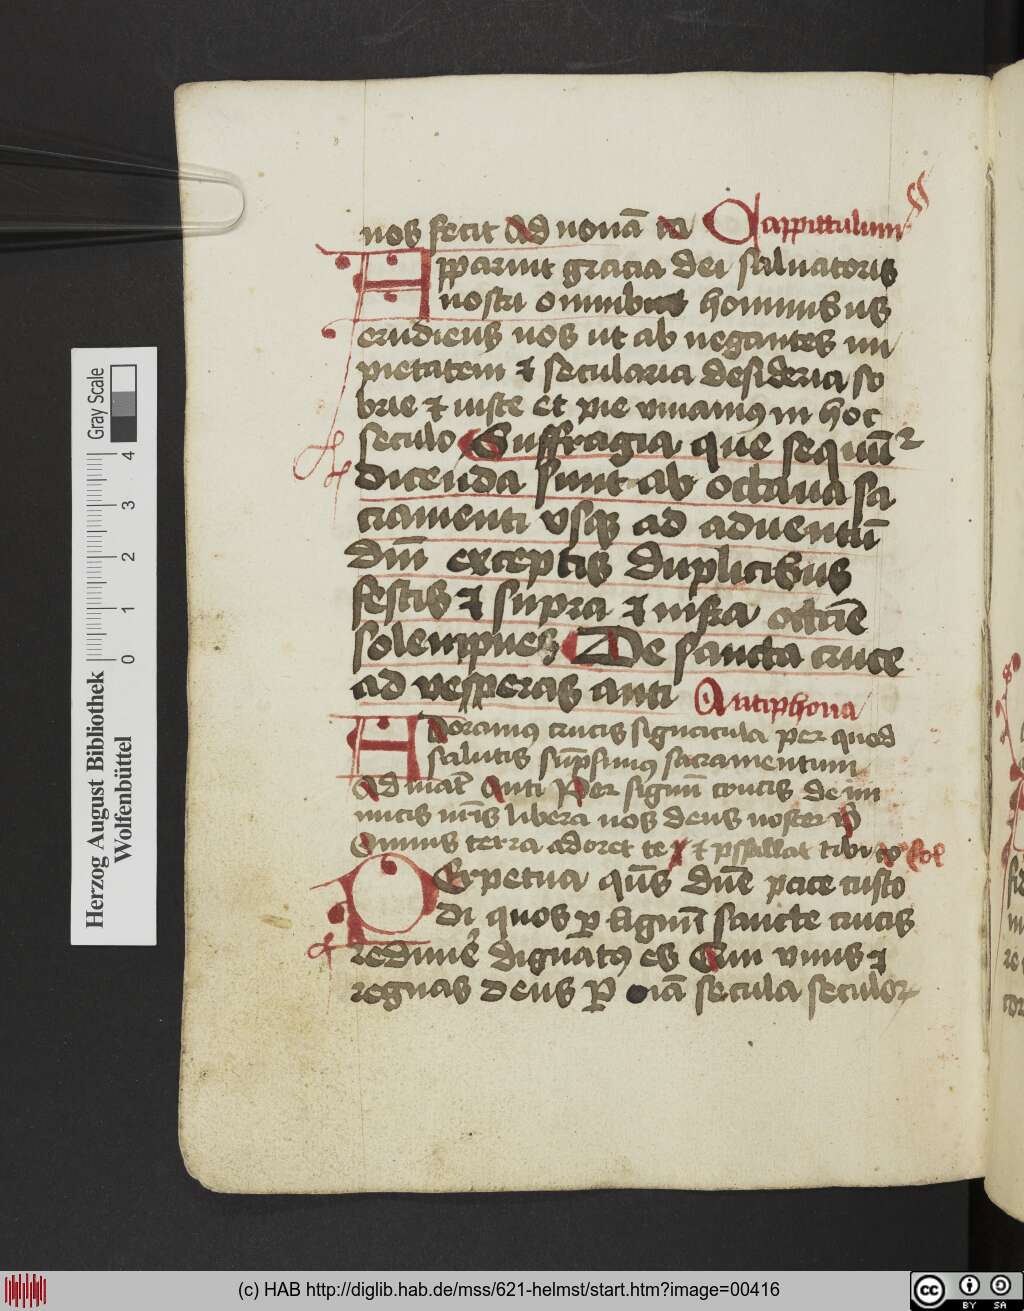 nos fecit Ad nonā ca Cappittulum
Apparuit gracia dei saluatoris
nostri omnibus hominibus
erudiens nos ut ab negantes im
pietatem et secularia desideria so
brie et iuste et pie viuamus in hoc
seculo Suffragia que sequūt
dicenda sunt ab octaua sa
cramenti vsque ad aduentū
dnī exceptis duplicibus
festis et supra et infra
solempnes De sancta cruce
ad vesperas anti Antiphona
Adoramus crucis signacula per quod
salutis sūpsimus sacramentum
Ad mat Anti Per signū crucis de ini
micis nrīs libera nos deus noster
Omnis terra adoret te et psallat tibi
Perpetua qūs dnē pace custo
di quos p lignū sancte crucis
redimē dignatus es Qui viuis et
regnas deus p oīa secula seculor
Herzog August Bibliothek
Wolfenbüttel
Gray Scale
0 1 2 3 4
(c) HAB http://diglib.hab.de/mss/621-helmst/start.htm?image=00416
cc BY SA